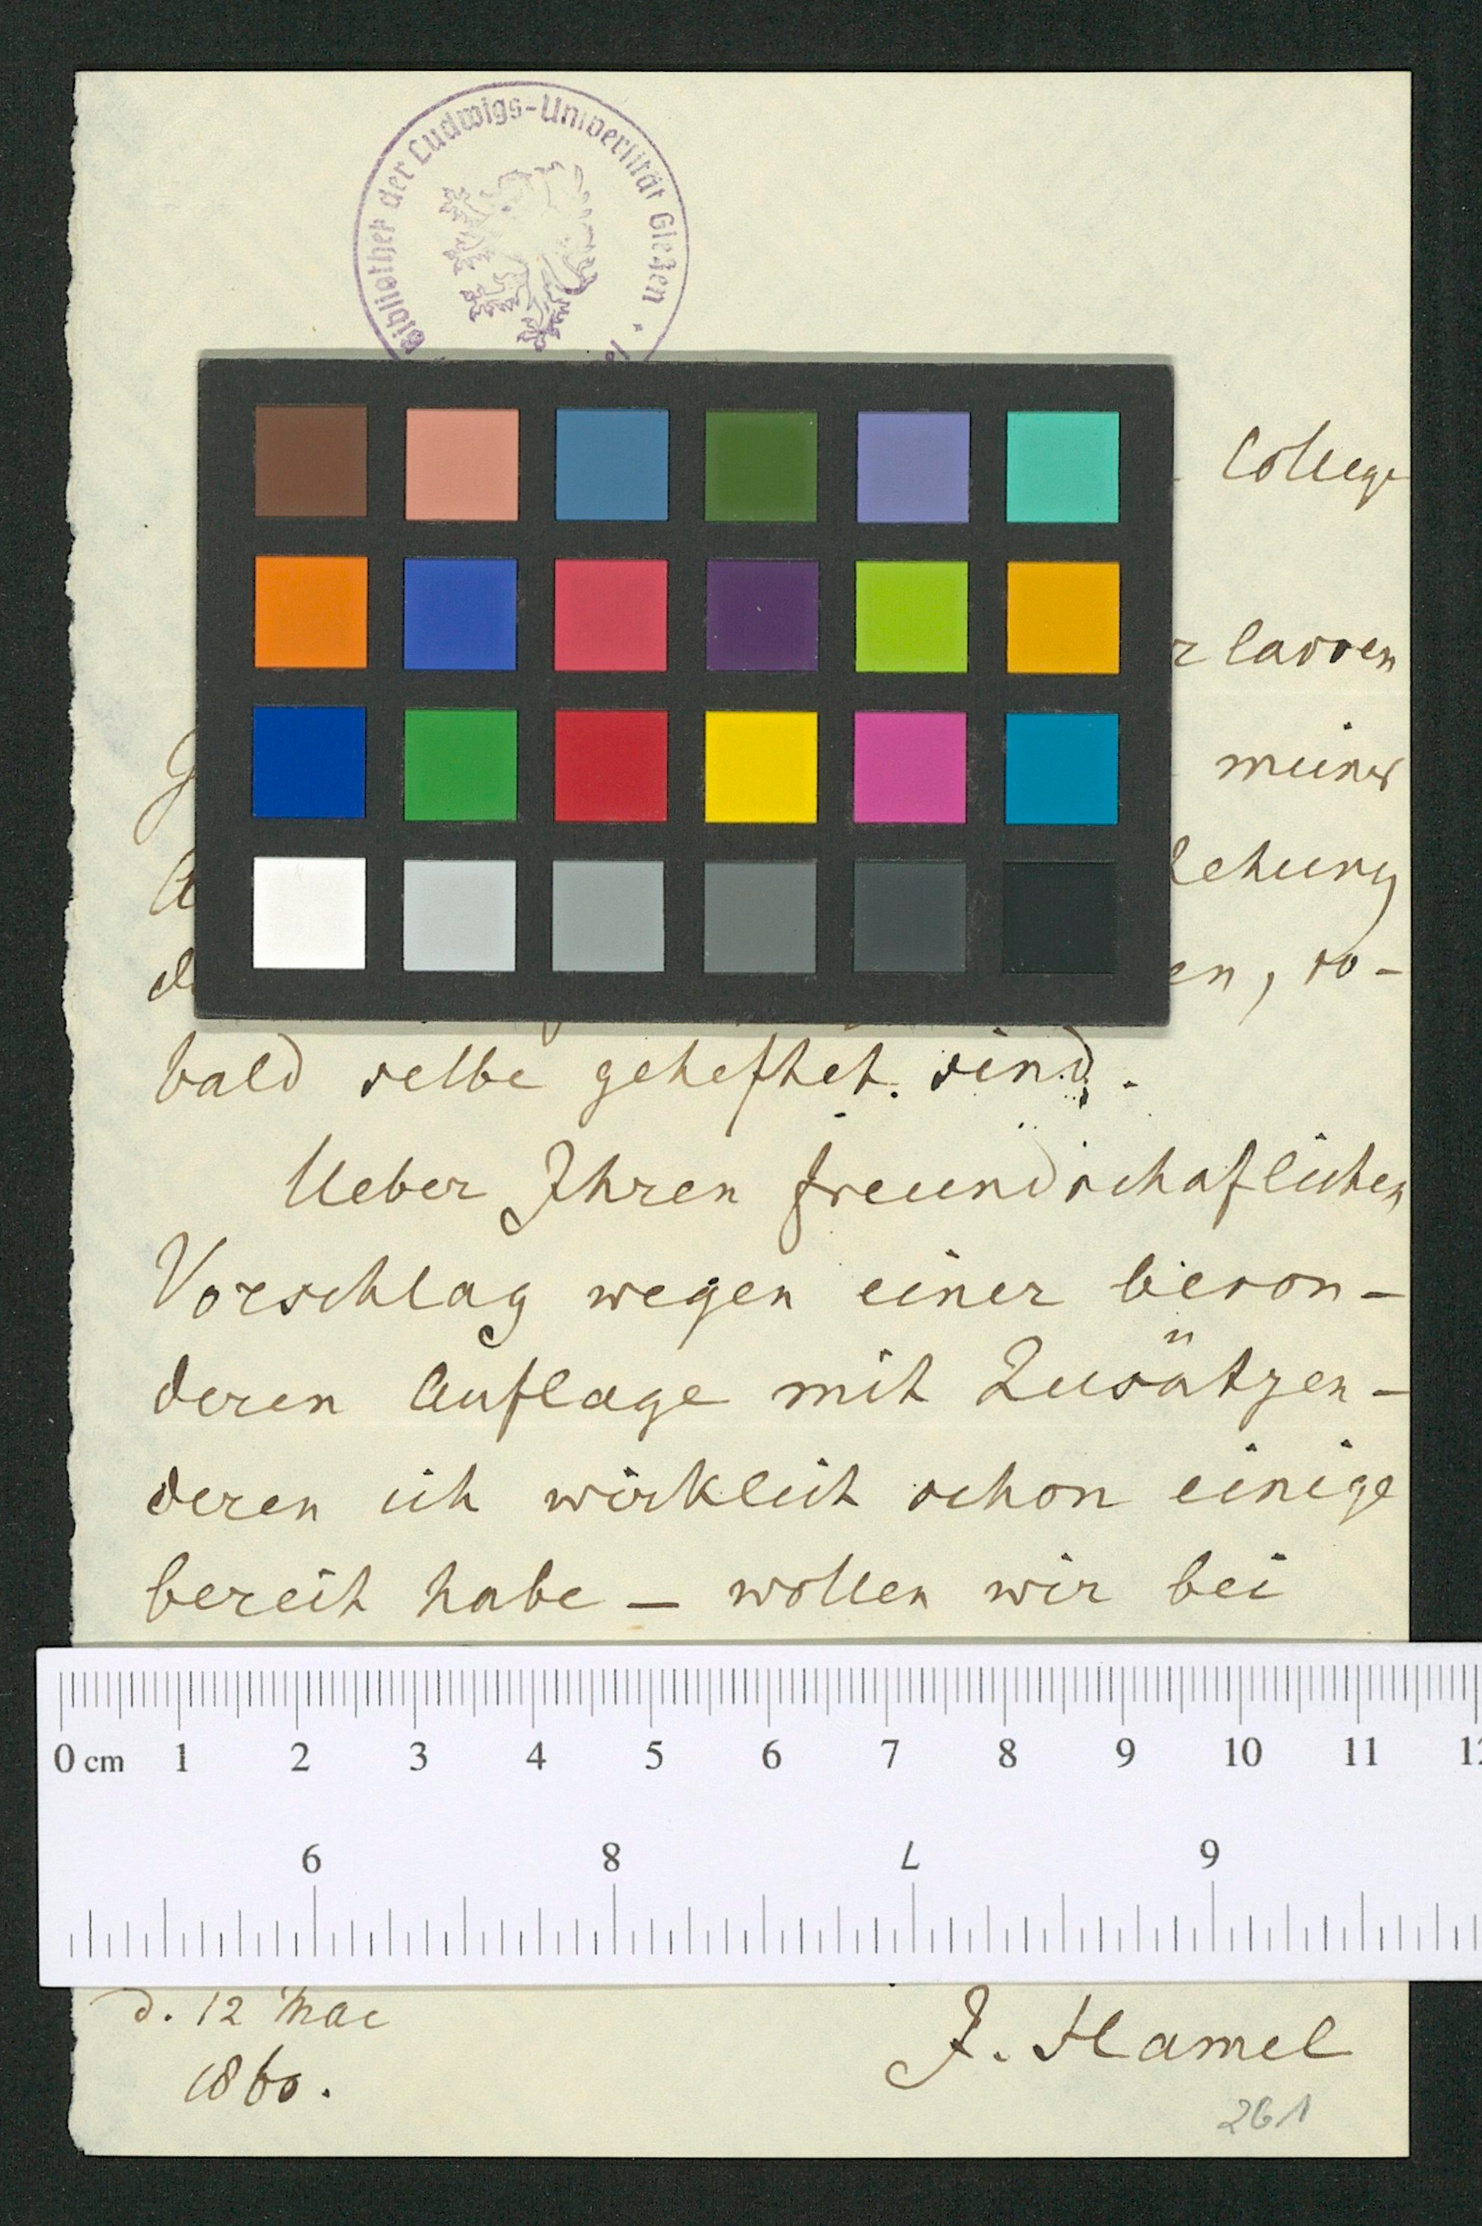 Bibliothek der Ludwigs-Universität Gießen
College
lassen
meiner
en, so-
bald selbe gehefthet sind.
Ueber Ihren freundschaflichen
Vorschlag wegen einer beson-
deren Auflage mit Zusätzen-
deren ich wirklich schon einige
bereit habe - wollen wir bei
0 cm 1 2 3 4 5 6 7 8 9 10 11
6 8 7 9
d. 12 Mai
1860.
J. Hamel
261